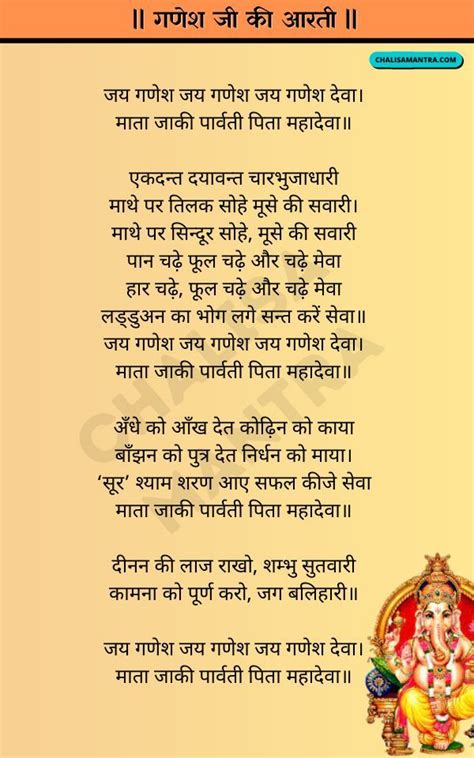 ॥ गणेश जी की आरती ॥
CHALISAMANTRA.COM
जय गणेश जय गणेश जय गणेश देवा।
माता जाकी पार्वती पिता महादेवा॥
एकदन्त दयावन्त चारभुजाधारी
माथे पर तिलक सोहे मूसे की सवारी।
माथे पर सिन्दूर सोहे, मूसे की सवारी
पान चढ़े फूल चढ़े और चढ़े मेवा
हार चढ़े, फूल चढ़े और चढ़े मेवा
लड्डुअन का भोग लगे सन्त करें सेवा॥
जय गणेश जय गणेश जय गणेश देवा।
माता जाकी पार्वती पिता महादेवा॥
अँधे को आँख देत कोढ़िन को काया
बाँझन को पुत्र देत निर्धन को माया।
‘सूर’ श्याम शरण आए सफल कीजे सेवा
माता जाकी पार्वती पिता महादेवा॥
दीनन की लाज राखो, शम्भु सुतवारी
कामना को पूर्ण करो, जग बलिहारी॥
जय गणेश जय गणेश जय गणेश देवा।
माता जाकी पार्वती पिता महादेवा॥
CHALISA
MANTRA